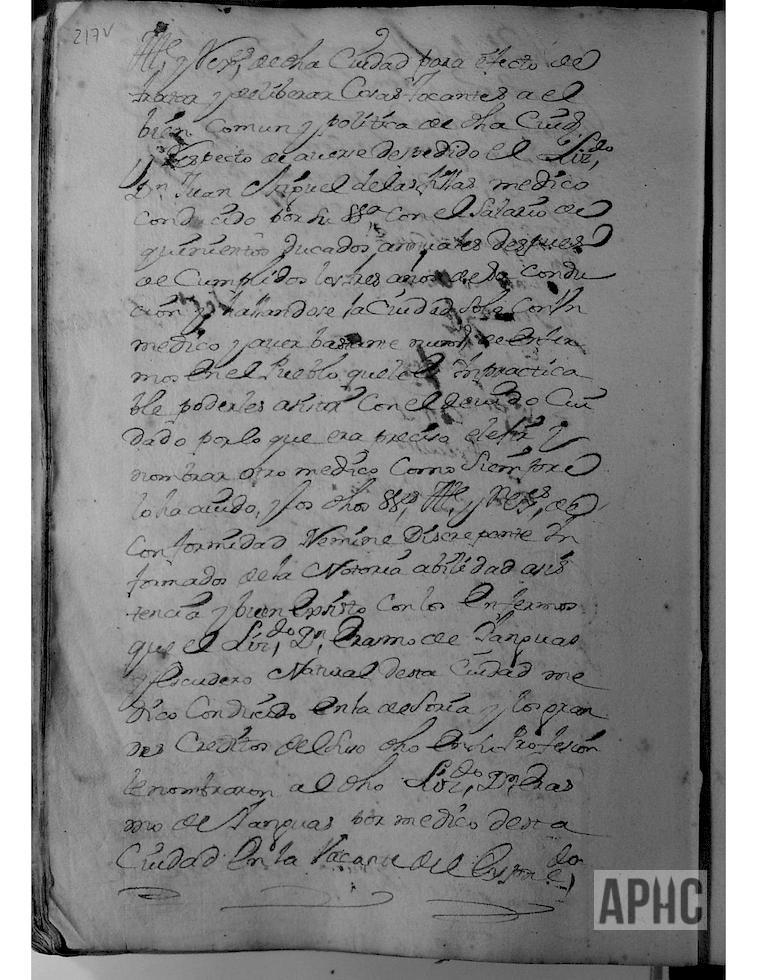 217v
Alle, y Rexs, de dha Ciudad para efecto de
tratar y deliberar Cosas tocantes a el
bien Comun y politica de dha Ciud
y Respecto de averse despedido el Lizdo,
Dn Juan Miguel de las medico
Conducido por su SSa Con el Salario de
quinientos ducados annuales despues
de Cumplidos los tres años de su condu
cion y hallandose la Ciudad Solo Con Un
medico y aver bastante num de enfer
mos en el Pueblo, que le es inpractica
ble poderles asistir Con el devido Cui
dado por lo que era preciso elexir y
nombrar otro medico Como Siempre
lo ha avido, y los dhos SSes, Alle, y Rexs, de
Conformidad Nemine Discrepante In
formados de la Notoria abilidad asis
tencia y buen Exsisto Con los Enfermos
que el Lizdo, Dn, Erasmo de Yanguas
y Escudero Natural desta Ciudad me
dico Conducido en la de Soria y los gran
des Creditos del Suso dho En su Profesion
le nombraron al dho Lizdo, Dn, Eras
mo de Yanguas por medico desta
Ciudad En la Vacante del
APHC